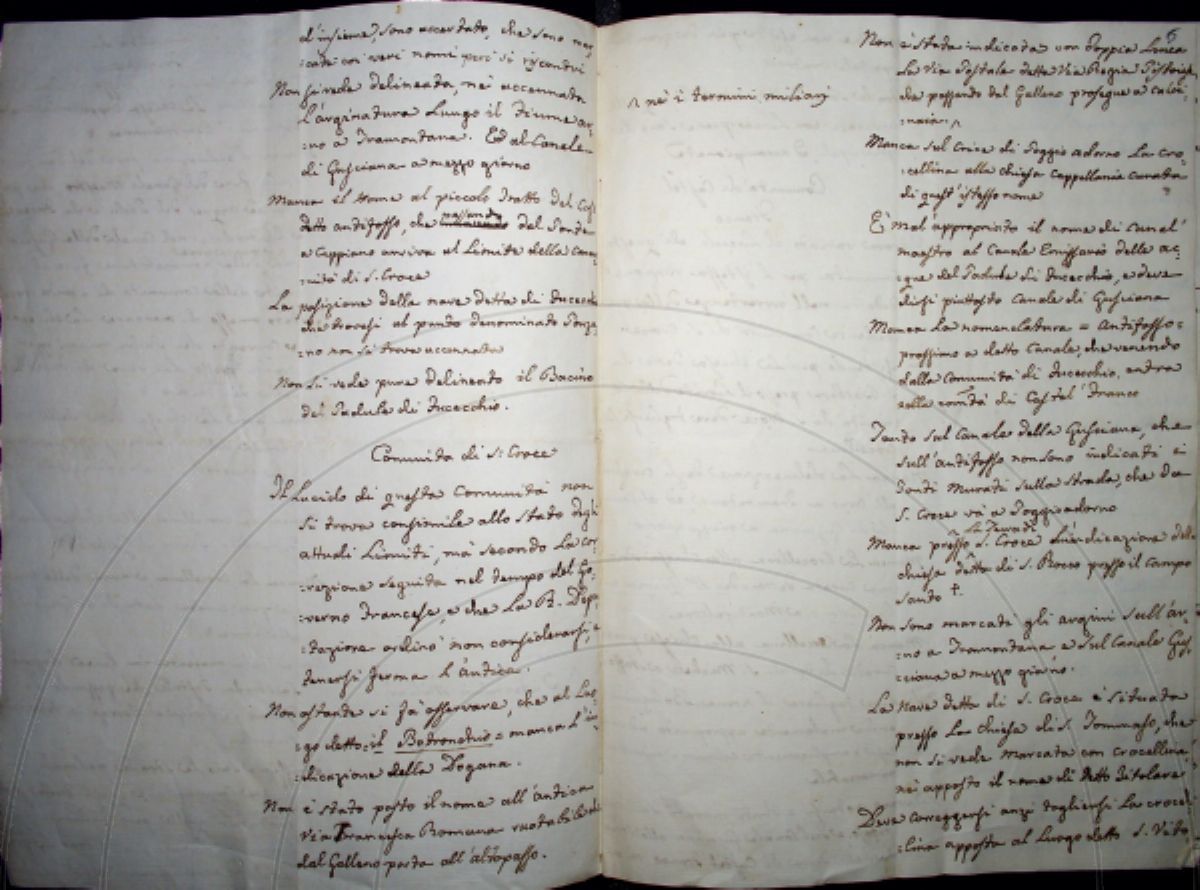 d'insieme, sono accertato, che sono mar
:cate coi veri nomi però si riscontri
Non si vede delineata, nè accennata
l'arginatura lungo il Fiume ar:
:no a Tramontana. Ed al Canale
di Gusciana a mezzo giorno
Manca il Nome al piccolo Tratto del Così
detto antifosso, che passando dal Ponte
a Cappiano arriva al Limite della Comu:
:nità di S. Croce
La posizione della nave detta di Fucecchio
che trovasi al punto denominato
:no non si trova accennata
Non si vede pure delineato il Bacino
del Padule di Fucecchio.
Comunità di S. Croce
Il Lucido di questa Comunità non
si trova consimile allo stato degli
attuali Limiti, ma secondo la cor:
:rezione seguita nel tempo del Go:
:verno Francese, e che la R. Dep:
:tazione ordinò non considerarsi, e
tenersi ferma l'antica.
Non ostante si fà osservare, che al Luo:
:go detto = il = manca l'in:
:dicazione della Dogana.
Non è stato posto il nome all'antica
Via Francesca Romana ruotabile che
dal Galleno porta all'altopasso.
^ nè i termini miliarj
6
Non è stata indicata con doppia Linea
la Via Postale detta Via Regia Pistoiese
che passando dal Galleno prosegue a
^
Manca sul Croce di Poggio adorno la Cro:
:cellina alla Chiesa Cappellania Curata
di quest'istesso nome
È mal'appropriato il nome di Canal'
maestro al Canale Emissario delle ac:
:que del Padule di Fucecchio, e deve
dirsi piuttosto Canale di Gusciana
Manca la nomenclatura = antifosso =
prossimo a detto Canale, che venendo
dalla Comunità di Fucecchio, entra
nella Com.tà di Castel Franco
Tanto sul Canale della Gusciana, che
sull'antifosso non sono indicati i
Ponti Murati sulla strada, che da
S. Croce và a Poggioadorno
Manca presso S. Croce l'indicazione della
Chiesa detta di S. Rocco presso il Campo
Santo †.
Non sono marcati gli argini sull'Ar:
:no a Tramontana e sul Canale Gus:
:ciana a mezzo giorno.
La Nave detta di S. Croce è situata
presso la Chiesa di S. Tommaso, che
non si vede marcata con Crocellina
nè apposto il nome di detto Titolare
Deve correggersi anzi togliersi la croce
:lina apposta al Luogo detto S. Vito